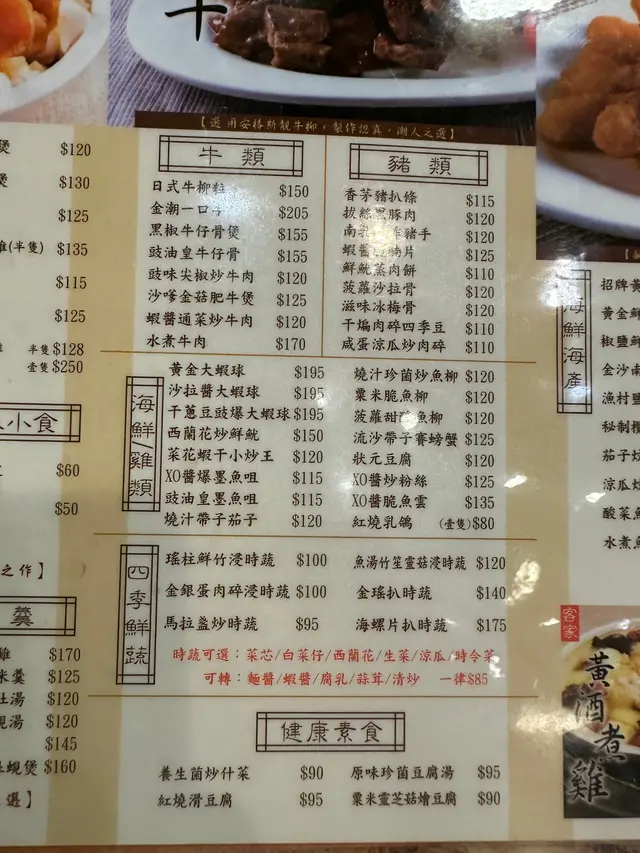 煲 $120
煲 $130
$125
雞(半隻) $135
$115
$125
半隻$128
壹隻$250
小食
$60
$50
之作】
羹
雞 $170
米羹 $125
肚湯 $120
蜆湯 $120
$145
肚蜆煲 $160
選】
牛
【選用安格斯靚牛柳，製作認真，潮人之選】
牛類
日式牛柳粒 $150
金潮一口牛 $205
黑椒牛仔骨煲 $155
豉油皇牛仔骨 $155
豉味尖椒炒牛肉 $120
沙嗲金菇肥牛煲 $125
蝦醬通菜炒牛肉 $120
水煮牛肉 $170
豬類
香茅豬扒條 $115
拔絲黑豚肉 $120
南乳 豬手 $120
蝦醬 腩片 $125
鮮魷蒸肉餅 $110
菠蘿沙拉骨 $120
滋味冰梅骨 $120
干煸肉碎四季豆 $110
咸蛋涼瓜炒肉碎 $110
海鮮/雞類
黃金大蝦球 $195
沙拉醬大蝦球 $195
干蔥豆豉爆大蝦球 $195
西蘭花炒鮮魷 $150
菜花蝦干小炒王 $120
XO醬爆墨魚咀 $115
豉油皇墨魚咀 $115
燒汁帶子茄子 $120
燒汁珍菌炒魚柳 $120
粟米脆魚柳 $120
菠蘿甜酸魚柳 $120
流沙帶子賽螃蟹 $125
狀元豆腐 $120
XO醬炒粉絲 $125
XO醬脆魚雲 $135
紅燒乳鴿 (壹隻)$80
四季鮮蔬
瑤柱鮮竹浸時蔬 $100
金銀蛋肉碎浸時蔬 $100
馬拉盞炒時蔬 $95
魚湯竹笙靈菇浸時蔬 $120
金瑤扒時蔬 $140
海螺片扒時蔬 $175
時蔬可選：菜芯/白菜仔/西蘭花/生菜/涼瓜/時令菜
可轉：麵醬/蝦醬/腐乳/蒜茸/清炒 一律$85
健康素食
養生菌炒什菜 $90
紅燒滑豆腐 $95
原味珍菌豆腐湯 $95
粟米靈芝菇燴豆腐 $90
海鮮海產
招牌黃
黃金鮮
椒鹽鮮
金沙南
漁村鹽
秘製欖
茄子炆
涼瓜炆
酸菜魚
水煮魚
客家
黃酒煮雞